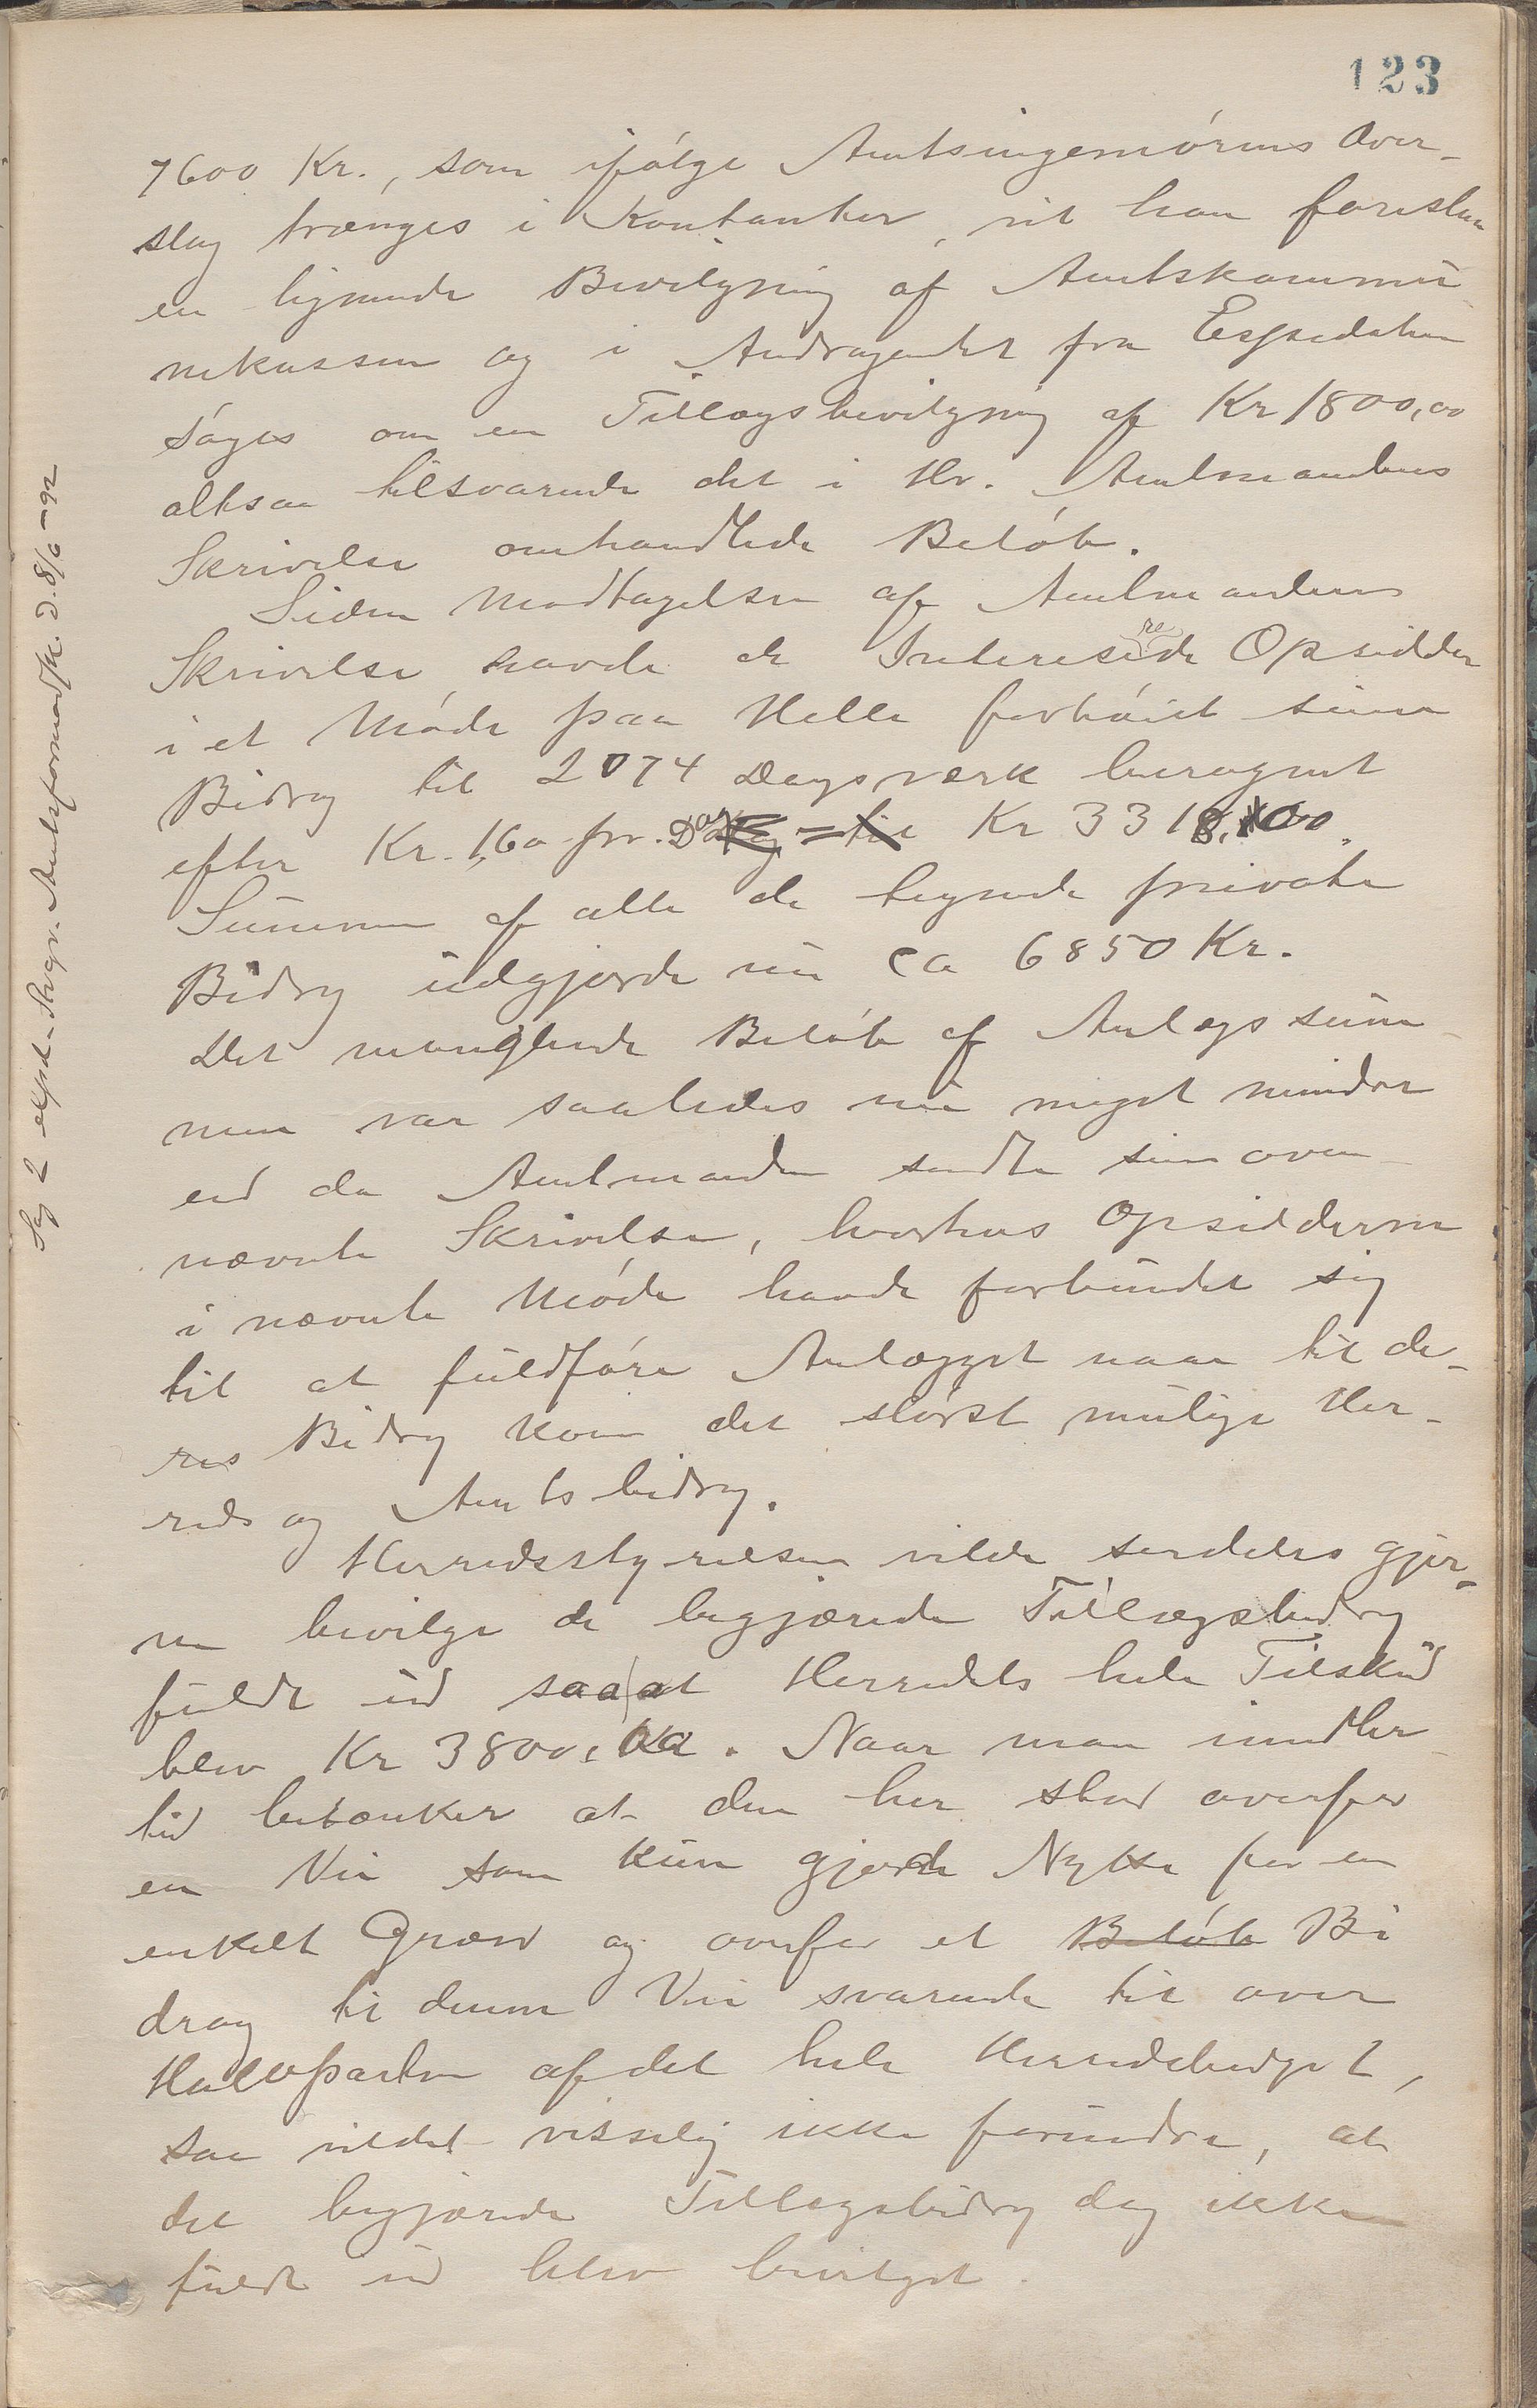 123
7600 Kr., som ifølge Amtsingeniørens Over-
slag trænges i Kontanter, vil han foreslaa
en lignende Bevilgning af Amtskommu
nekassen og i Andragendet fra Espedalen
søges om en Tillægsbevilgning af Kr 1800,00
altsaa tilsvarende det i Hr. Amtmandens
Skrivelse omhandlede Beløb.
Siden Modtagelsen af Amtmandens
Skrivelse havde de Interesserede Opsiddere
i et Møde paa Helle forhøiet sine
Bidrag til 2074 Dagsværk beregnet
efter Kr. 1,60 pr. Dag = Kr 3318,00.
Summen af alle de tegnede private
Bidrag udgjorde nu ca 6850 Kr.
Det manglende Beløb af Anlægssum-
men var saaledes nu meget mindre
end da Amtmanden sendte sin oven-
nævnte Skrivelse, hvorhos Opsidderne
i nævnte Møde havde forbundet sig
til at fuldføre Anlægget naar til de-
res Bidrag kom det størst mulige Her-
reds og Amtsbidrag.
Herredsstyrelsen vilde serdeles gjer-
ne bevilge de begjærede Tillægsbidrag
fuldt ud saa at Herredets hele Tilskud
blev Kr 3800,00. Naar man imidler
tid betænker at den her stod overfor
en Vei som kun gjorde Nytte for en
enkelt Grænd og overfor et Beløb Bi
drag til denne Vei svarende til over
Halvparten af det hele Herredsbudget,
saa vil det visselig ikke forundre, at
det begjærede Tillægsbidrag dog ikke
fuldt ud blev bevilget.
Sag 2 exped. Skr. Amtsformandsk. d. 8/6-92